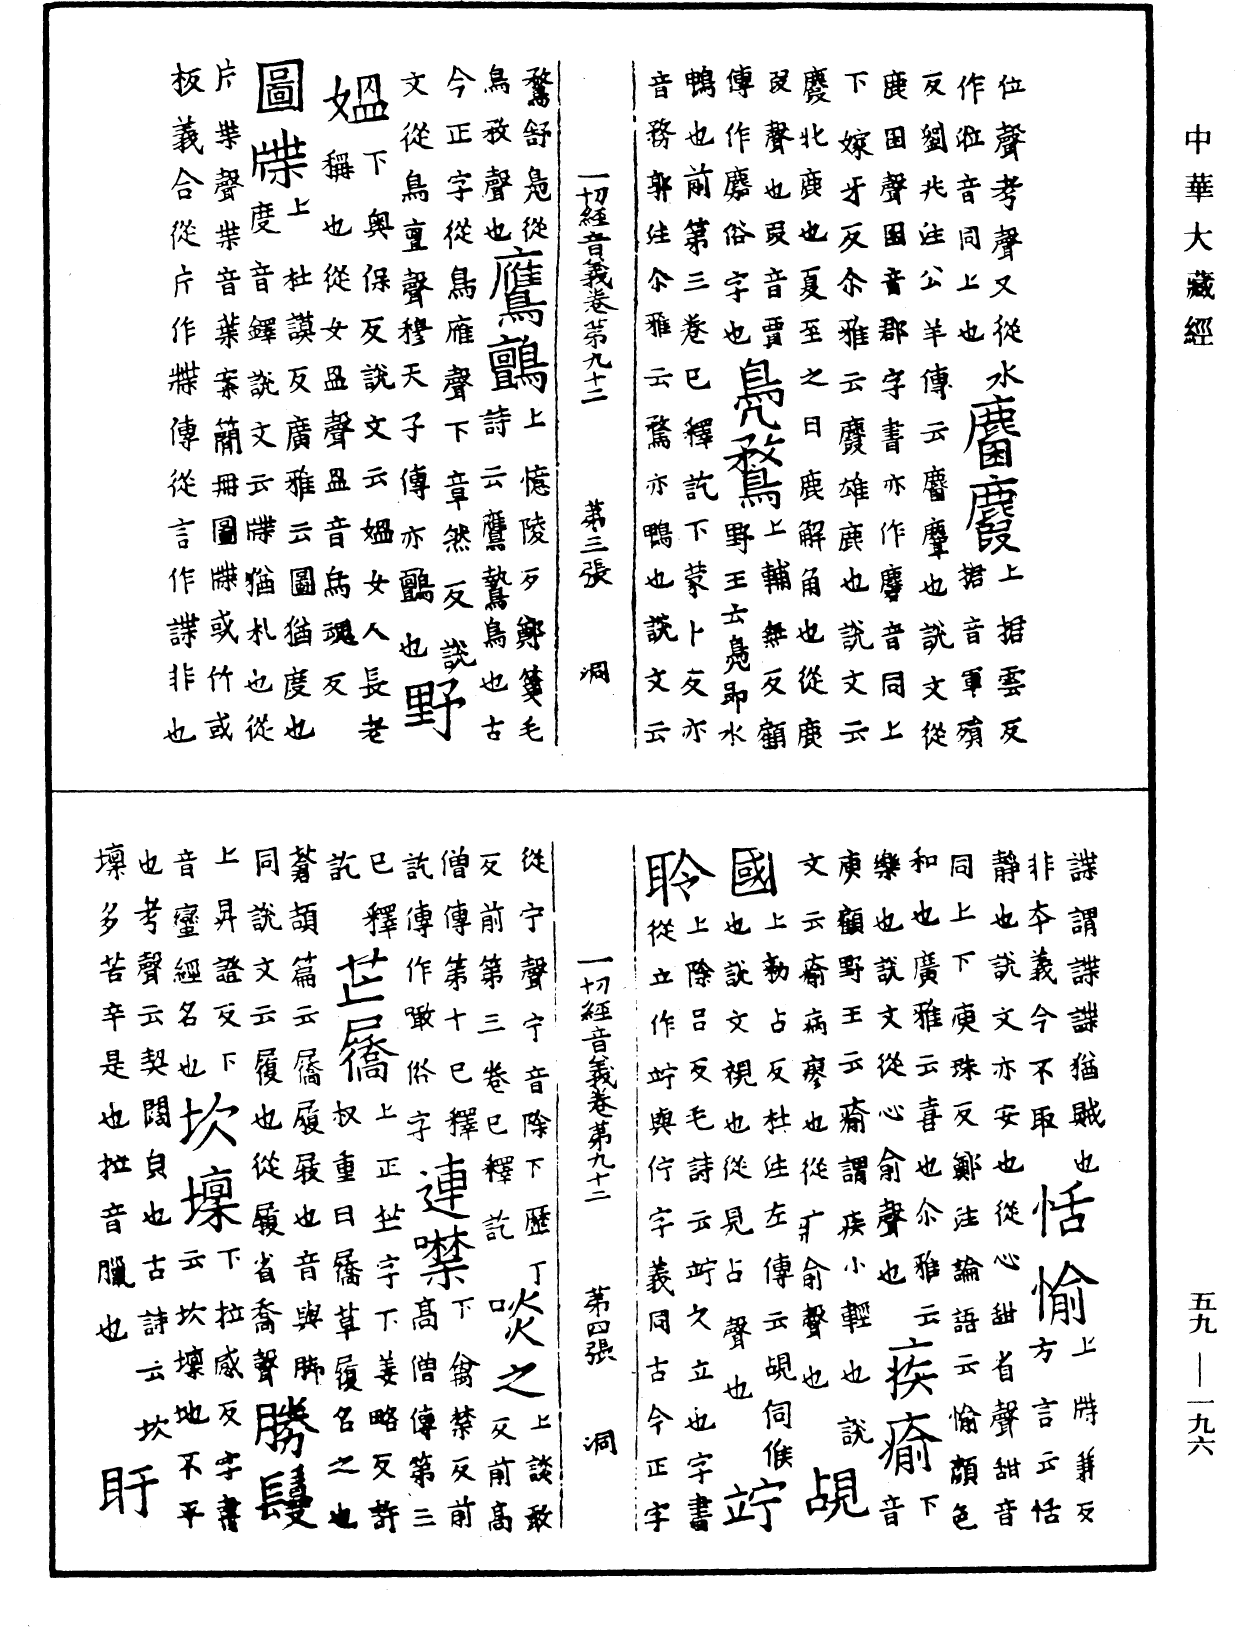 中華大藏經
位聲考聲又從水
作涖音同上也
麏麚
上捃雲反
捃音軍殞
反劉兆注公羊傳云麏羣也說文從
鹿囷聲囷音郡字書亦作麕音同上
下嫁牙反尒雅云麚雄鹿也說文云
麚北鹿也夏至之日鹿解角也從鹿
叚聲也叚音賈
傳作麏俗字也
鳧鶩
上輔無反顧
野王云鳧即水
鴨也前第三卷已釋訖下蒙卜反亦
音務郭注尒雅云鶩亦鴨也說文云
一切經音義卷第九十二 第三張 洞
鶩舒鳧從
鳥敄聲也
鷹鸇
上憶陵反鄭箋毛
詩云鷹鷙鳥也古
今正字從鳥雁聲下章然反說
文從鳥亶聲穆天子傳亦鸇也
野媼
下奧保反說文云媼女人長老
稱也從女𥁕聲𥁕音烏魂反
圖牒
上杜謨反廣雅云圖猶度也
度音鐸說文云牒猶札也從
片枼聲枼音葉案簡冊圖牒或竹或
板義合從片作牒傳從言作諜非也
諜謂諜諜猶賊也
非本義今不取
恬愉
上牒兼反
方言云恬
靜也說文亦安也從心甜省聲甜音
同上下庾珠反鄭注論語云愉顏色
和也廣雅云喜也尒雅云
樂也說文從心俞聲也
疾瘉
下
音
庾顧野王云瘉謂疾小輕也說
文云瘉病瘳也從疒俞聲也
覘國
上勑占反杜注左傳云覘伺候
也說文視也從見占聲也
竚聆
上除呂反毛詩云竚久立也字書
從立作竚與佇字義同古今正字
一切經音義卷第九十二 第四張 洞
從宁聲宁音除下歷丁
反前第三卷已釋訖
啖之
上談敢
反前高
僧傳第十已釋
訖傳作噉俗字
連噤
下禽禁反前
高僧傳第三
已釋
訖
芒屩
上正茫字下姜略反許
叔重曰屩草履名之也
蒼頡篇云屩履屐也音與腳
同說文云履也從履省喬聲
勝鬘
上昇證反下
音鑾經名也
坎壈
下拉感反字書
云坎壈地不平
也考聲云契闊貞也古詩云坎
壈多苦辛是也拉音臘也
盱
五九—一九六